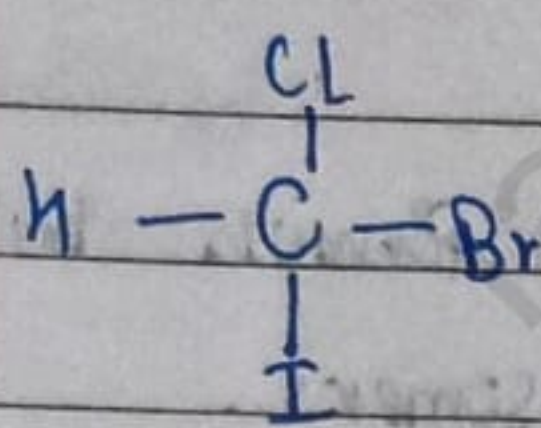 CL
H — C — Br
I